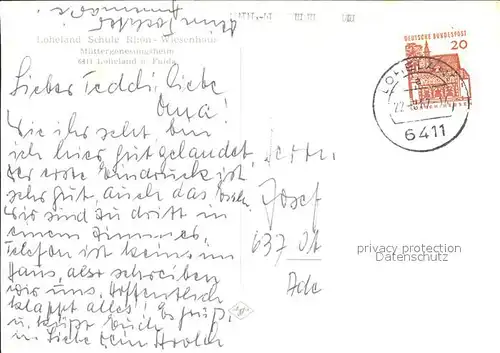 Loheland Schule Rhön - Wiesenhaus
Müttergenesungsheim
6411 Loheland ü. Fulda
Lieber Teddi, liebe
Oma!
Wie ihr seht, bin
ich hier gut gelandet.
Der erste Eindruck ist
sehr gut, auch das
Wir sind zu dritt in
einem Zimmer.
Telefon ist keins im
Haus, also schreiben
wir uns. Hoffentlich
klappt alles! Es grüßt
u. küßt Euch
in Liebe
Josef
637
Ade
DEUTSCHE BUNDESPOST
20
LOHELAND
6411
privacy protection
Datenschutz